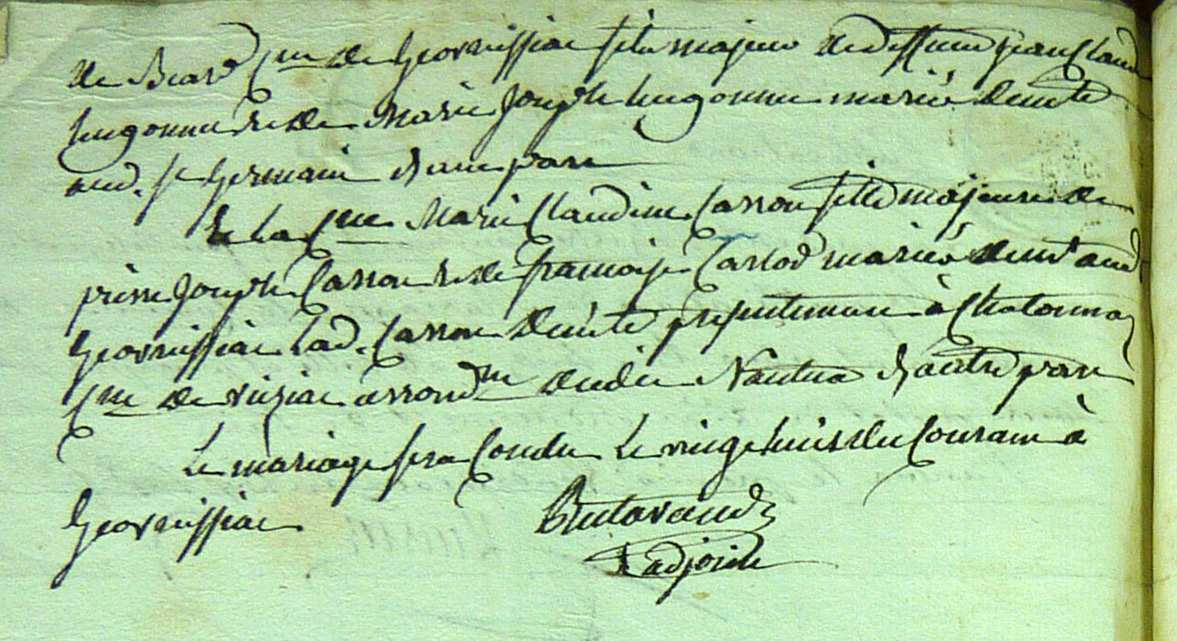 de Beard C.ne de Geovreissiac fils majeur de deffunt Jean Claude
hugonnet et de Marie Joseph hugonnet mariés
aud. St Germain d'une part
Et la C.ne Marie Claudine Carron fille majeure de
pierre Joseph Carron et de françoise mariés aud
Geovreissiac lad. Carron presentement à Chatonnay
C.ne de vizia arrond.m dudit Nantua d'autre part
Le mariage sera Conclu Le vingt huit du Courant à
Geovreissiac
L'adjoint